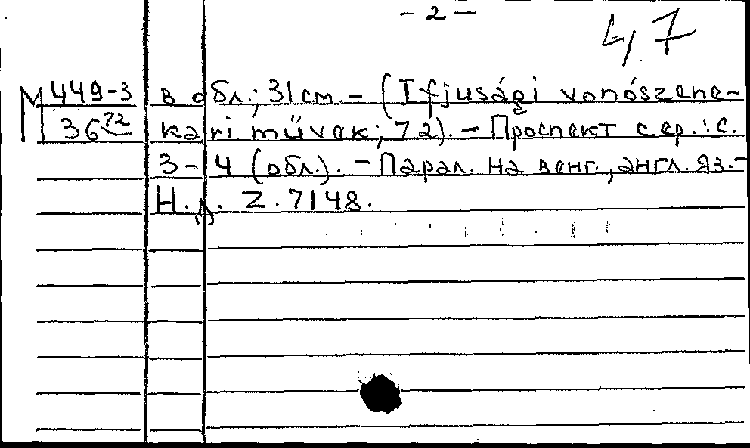 - 2 -
4,7
М 449-3 в обл.; 31 см. - (Ifjusági vonószene-
36 72 kari müvak; 72). - Проспект сер.: с.
3-4 (обл.). - Парал. на венг., англ. яз. -
Н.д. Z. 7148.